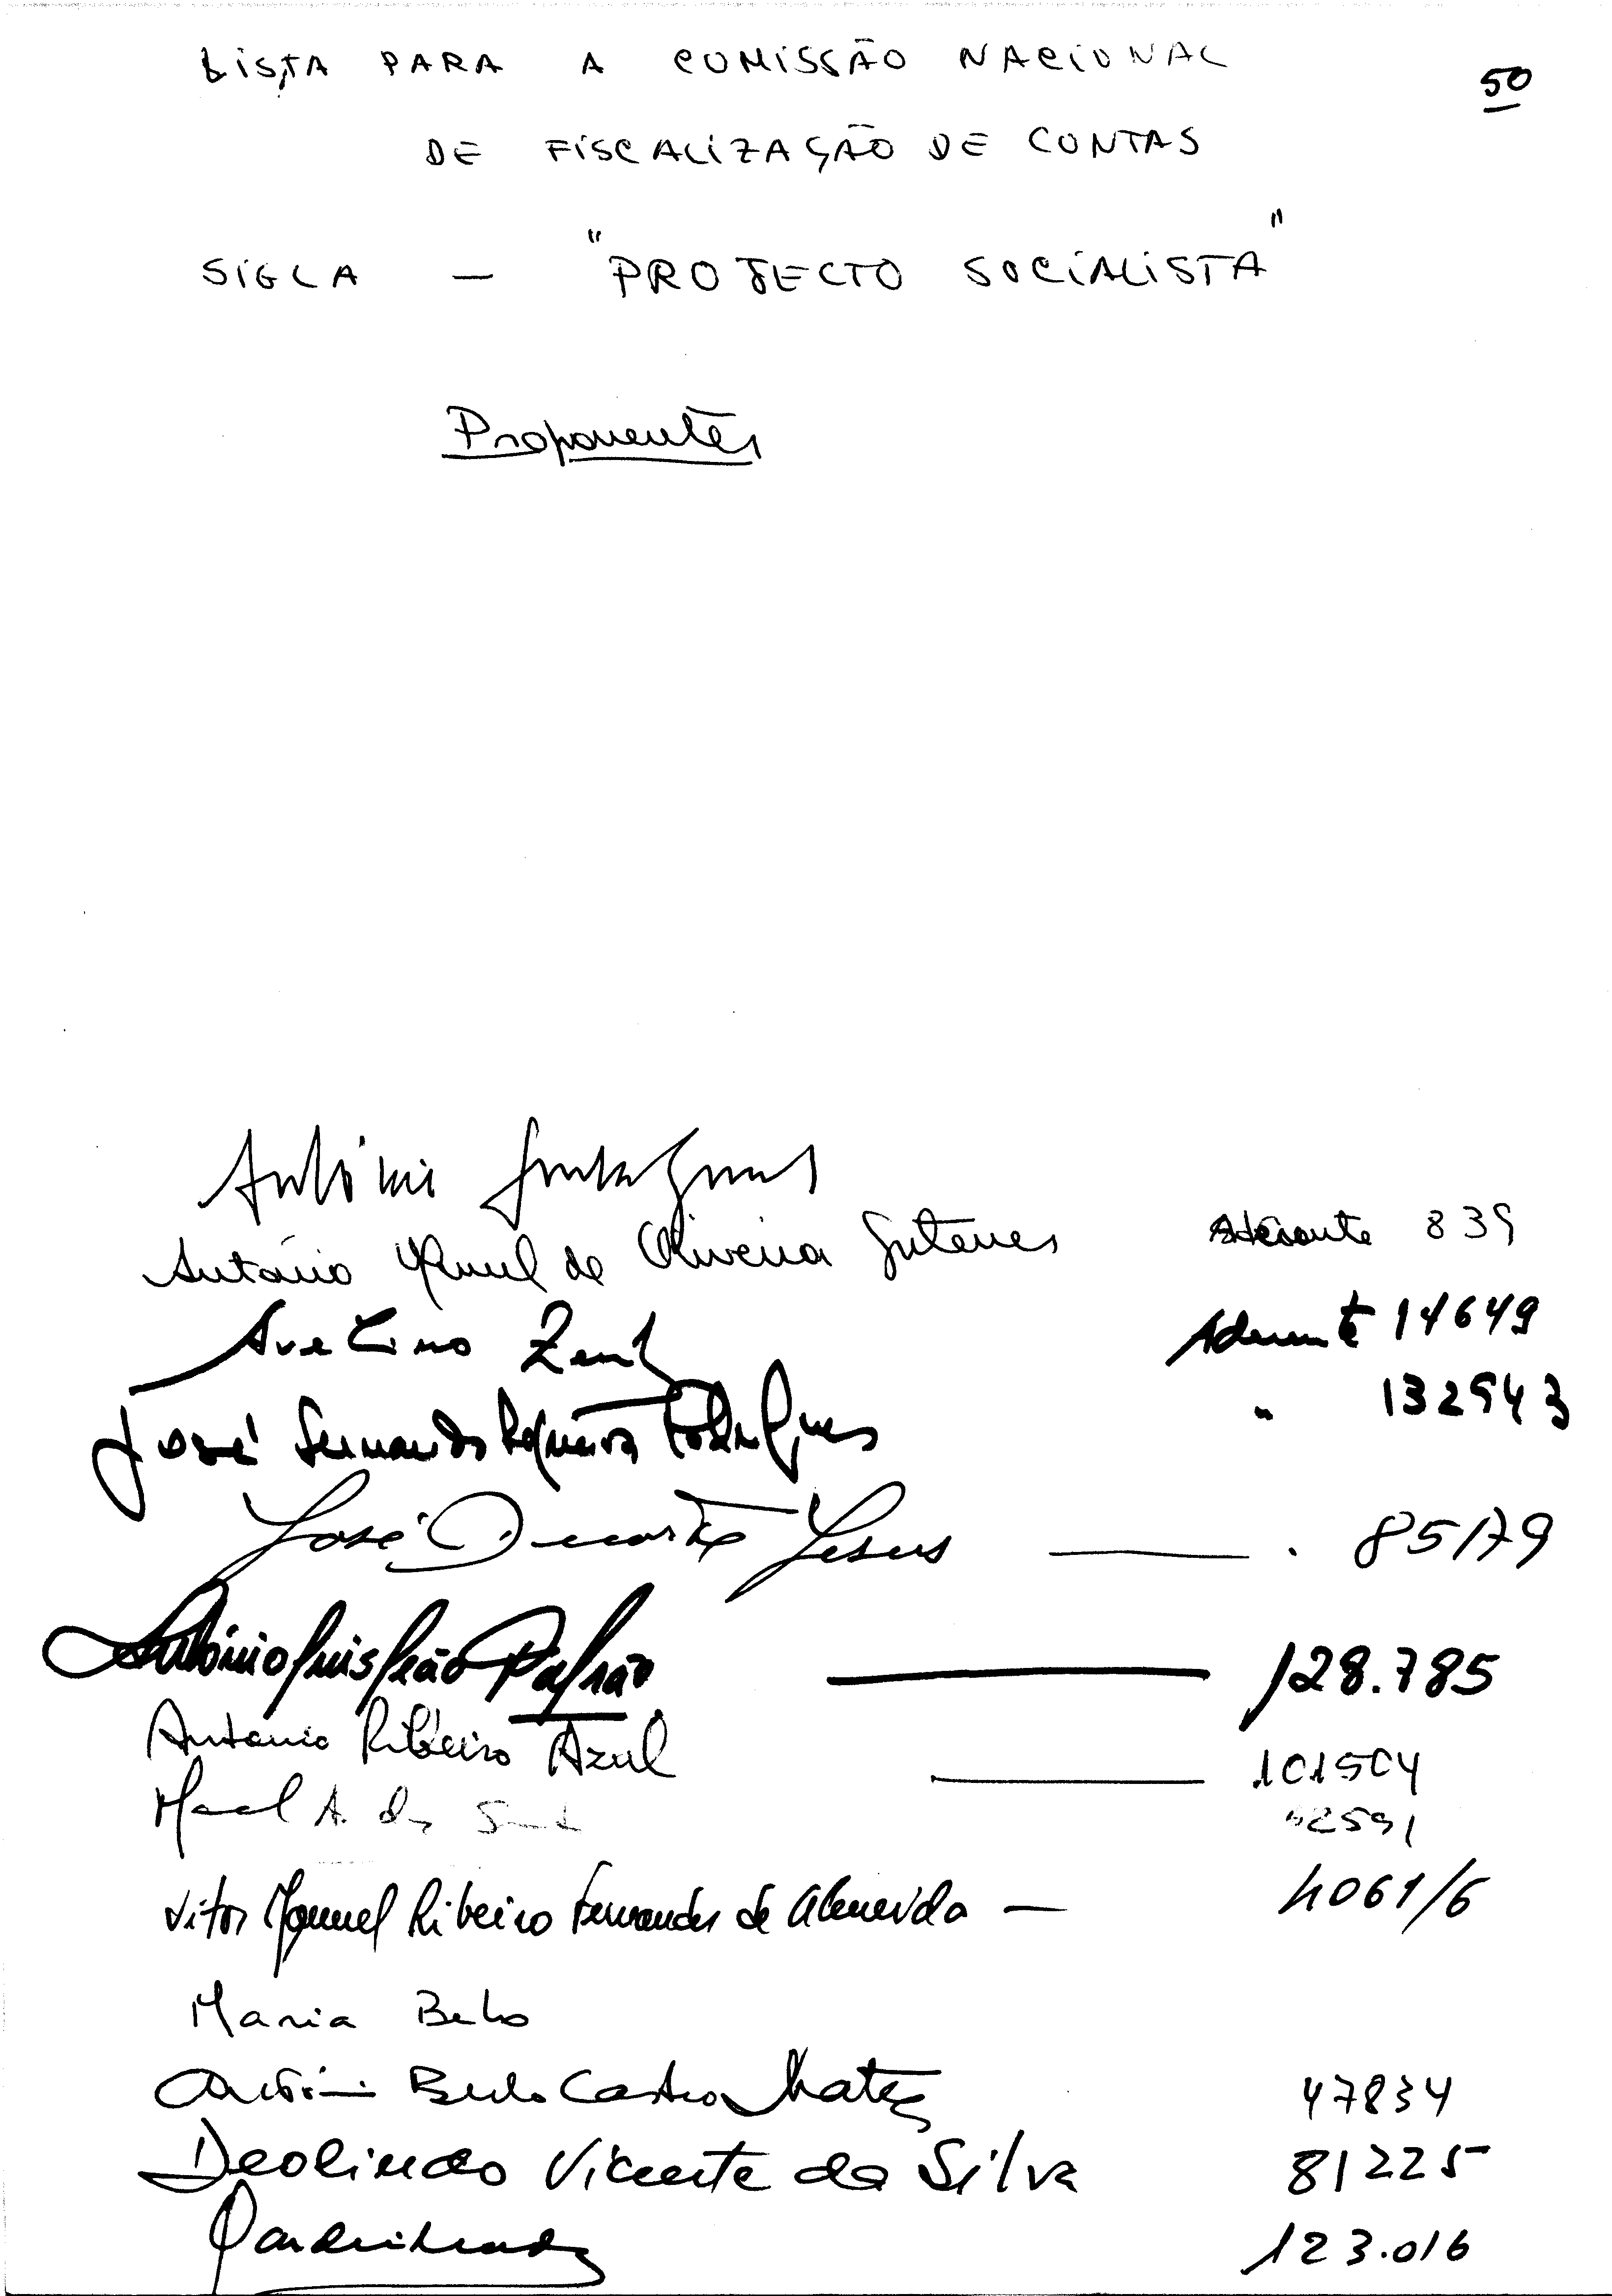 LISTA PARA A COMISSÃO NACIONAL
50
DE FISCALIZAÇÃO DE CONTAS
SIGLA — "PROJECTO SOCIALISTA"
Proponentes
António
António Manuel de Oliveira Guterres Aderente 839
Avelino Zenh Aderente 14649
José Fernando Rodrigues " 132943
José Duarte Jesus — . 85179
António Luis Leão Pafrão — 128.785
Antonio Ribeiro Azul — 101504
A. 2591
Vitor Manuel Ribeiro Fernandes de Almeida — 4061/6
Maria Belo
António Belo Castro Matos 47834
Deolindo Vicente da Silva 81225
123.016